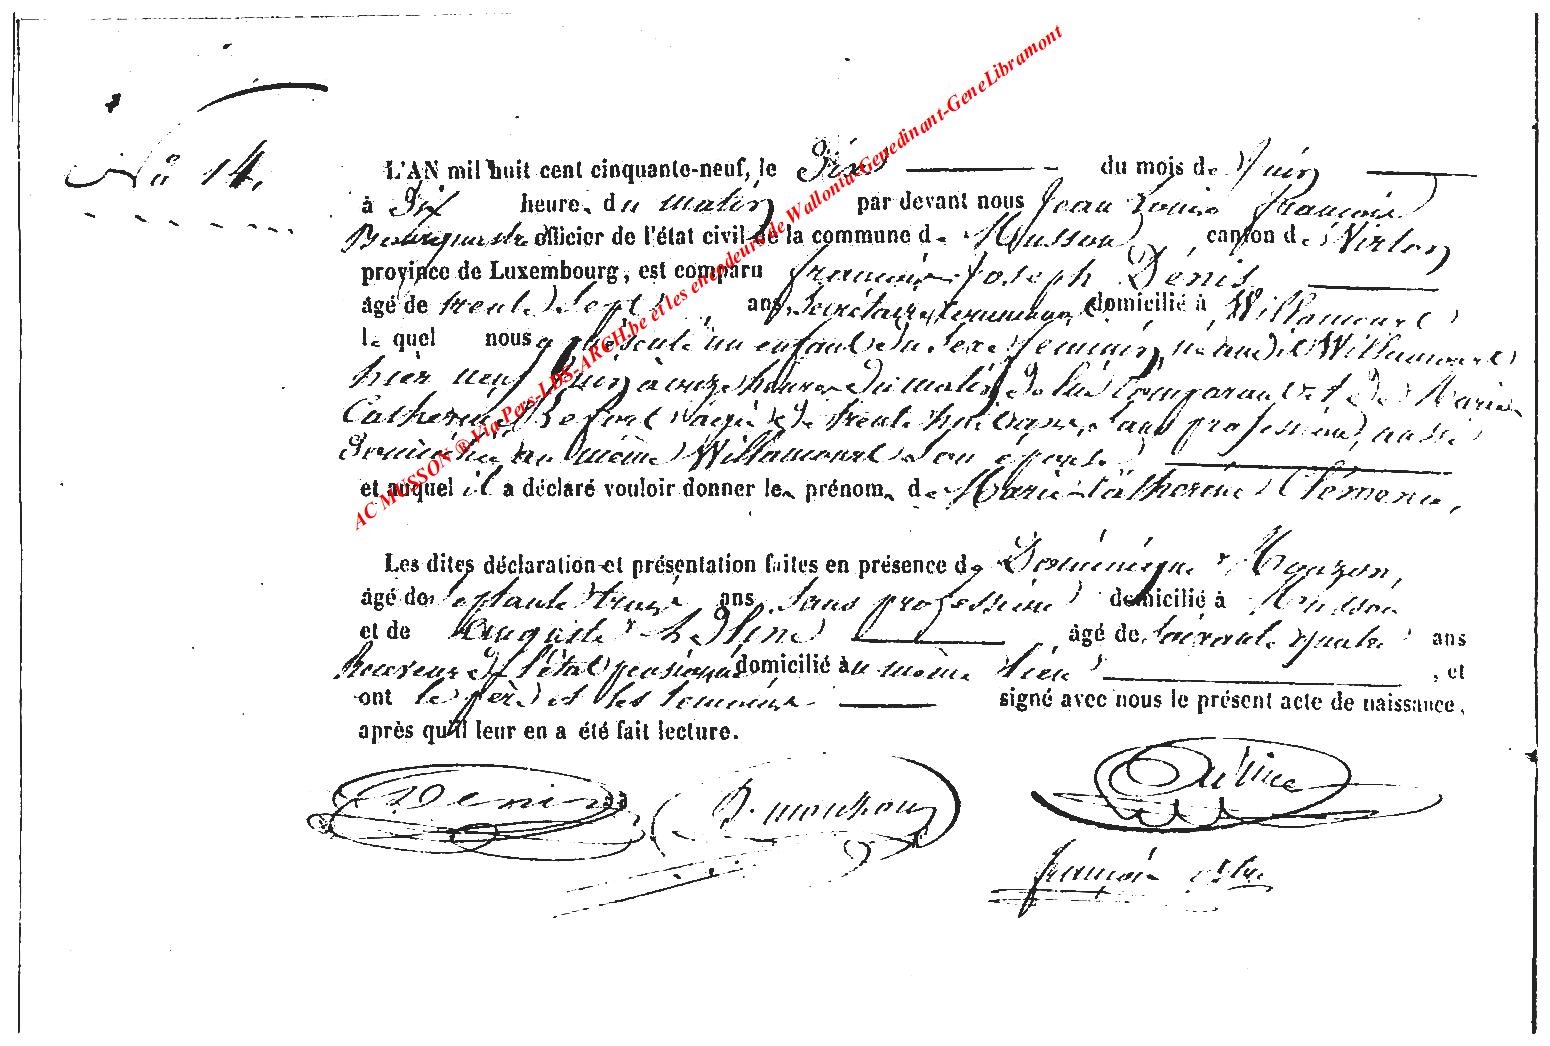 Nº 14.
L'AN mil huit cent cinquante-neuf, le Dix du mois de Juin
à Dix heure, du matin par devant nous Jean Louis François
Bourgmestre officier de l'état civil de la commune de Musson, canton de Virton
province de Luxembourg, est comparu François Joseph Dénis
âgé de trente Sept ans, Secrétaire Communal domicilié à Willancourt
lequel nous a présenté un enfant du Sexe féminin, né audit Willancourt
hier neuf Juin à onze heures du matin De lui Comparant et de Marie
Catherine âgée de trente huit ans, Sans profession, aussi
Domiciliée au même Willancourt Son épouse
et auquel il a déclaré vouloir donner les prénoms de Marie Catherine Clémence,
Les dites déclaration et présentation faites en présence de Dominique Mouzon,
âgé de Septante trois ans Sans profession domicilié à Musson
et de Auguste âgé de Soixante quatre ans
Receveur de l'état pensionné domicilié au même lieu, et
ont le père et les témoins signé avec nous le présent acte de naissance,
après qu'il leur en a été fait lecture.
Denis D. mouzon
françois bstre
AC MUSSON ® Via Pers-LDS-ARCH.be et les encodeurs de Wallonia-Genedinant-GeneLibramont